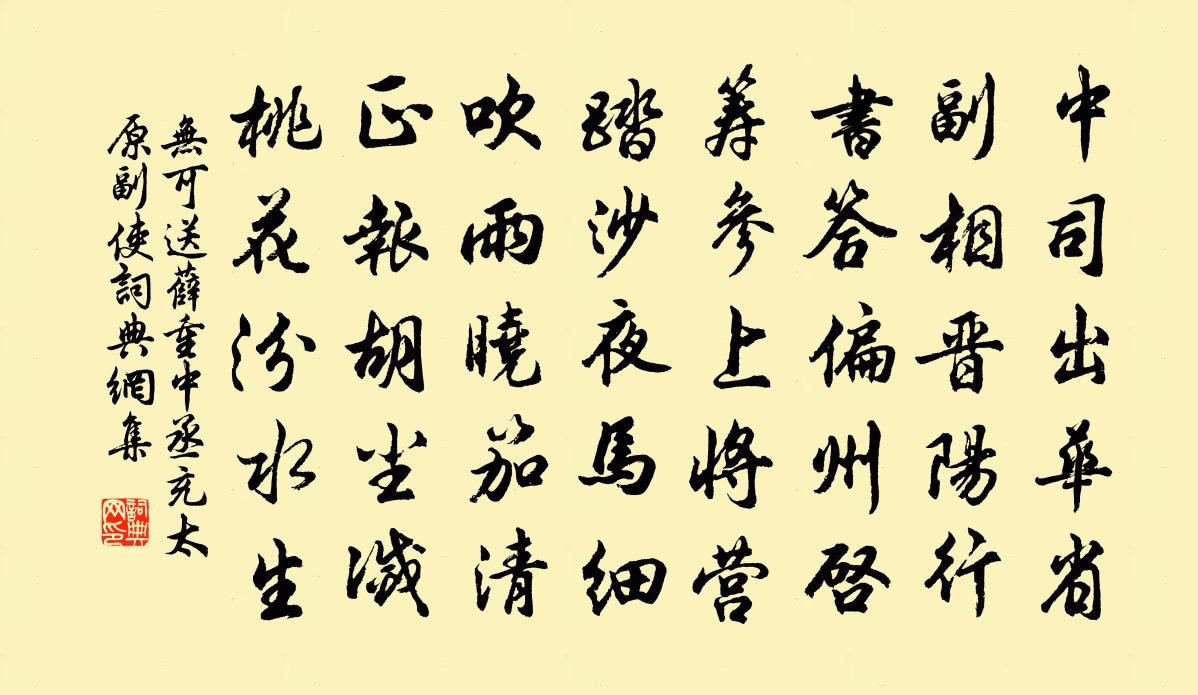 中司出華省
副相晋陽行
書答偏州啓
筹參上將营
踏沙夜馬細
吹雨曉笳清
正報胡尘滅
桃花汾水生
無可送薛重中丞充太
原副使詞典網集
詞典网印